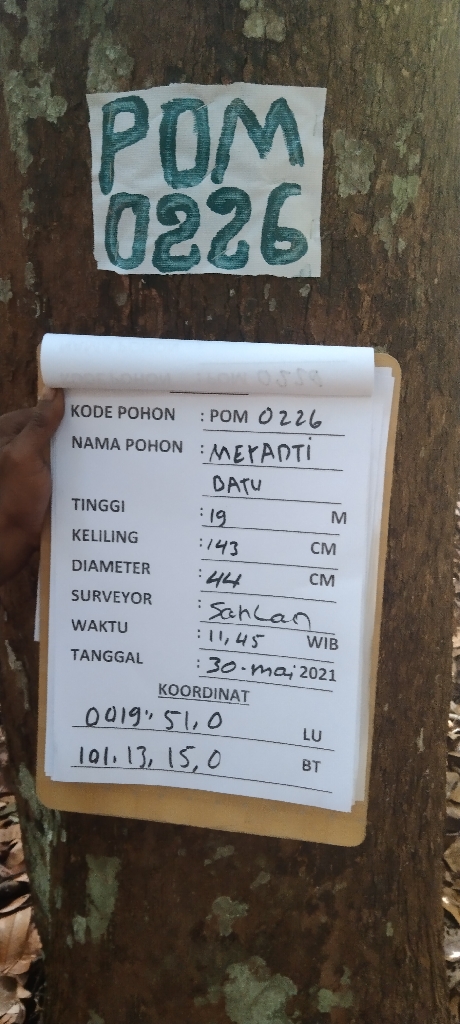 POM
0226
KODE POHON : POM 0226
NAMA POHON : MERANTI
BATU
TINGGI : 19 M
KELILING : 143 CM
DIAMETER : 44 CM
SURVEYOR : Sahlan
WAKTU : 11,45 WIB
TANGGAL : 30-mai 2021
KOORDINAT
0019" 51,0 LU
101, 13, 15,0 BT